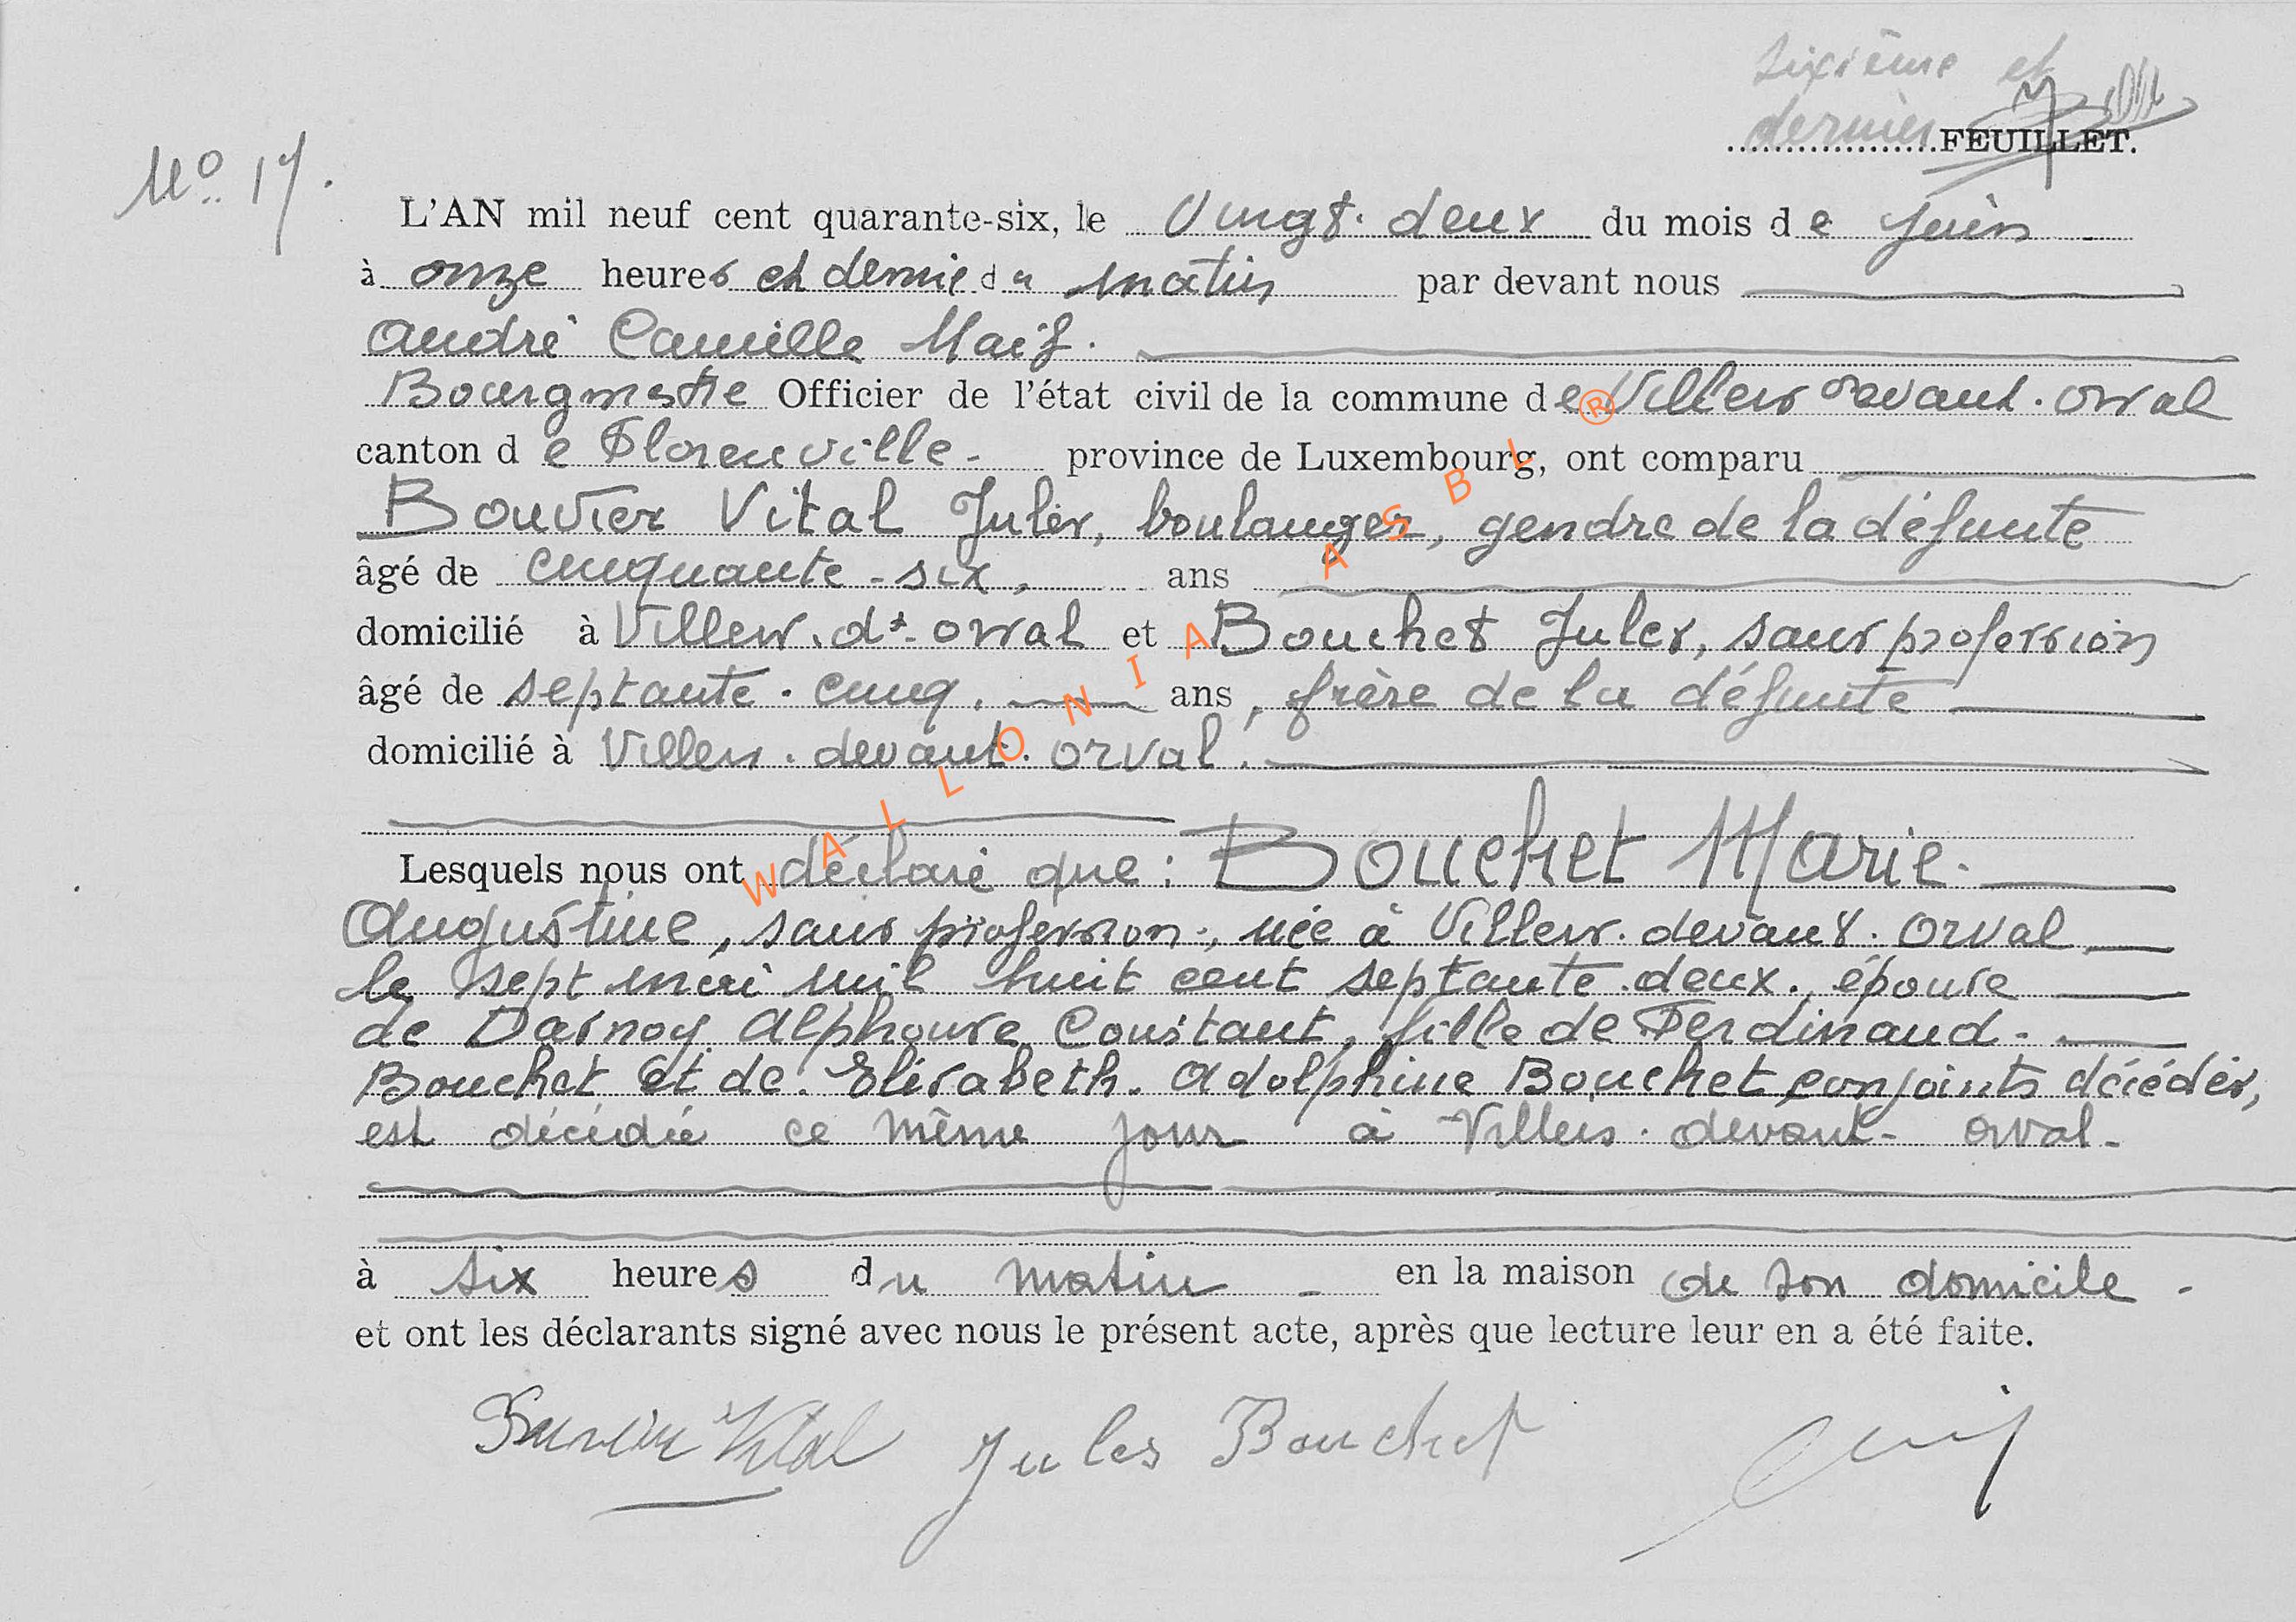 sixième et
dernier FEUILLET.
No. 17.
L'AN mil neuf cent quarante-six, le vingt-deux du mois de juin
à onze heures et demie du matin par devant nous
André Camille
Bourgmestre Officier de l'état civil de la commune de Villers devant-Orval
canton de Florenville - province de Luxembourg, ont comparu
Bouvier Vital Jules, boulanger, gendre de la défunte
âgé de cinquante-six, ans
domicilié à Villers-dt-Orval et Bouchet Jules, sans profession
âgé de septante-cinq, ans, frère de la défunte
domicilié à Villers-devant-Orval.
Lesquels nous ont déclaré que : Bouchet Marie-
Augustine, sans profession, née à Villers-devant-Orval
le sept mai mil huit cent septante-deux, épouse
de Darnoy Alphonse Constant, fille de Ferdinand-
Bouchet et de Elisabeth-Adolphine Bouchet conjoints décédés,
est décédée ce même jour à Villers-devant-Orval-
à six heures du matin - en la maison de son domicile -
et ont les déclarants signé avec nous le présent acte, après que lecture leur en a été faite.
Bouvier Vital Jules Bouchet
WALLONIA ASBL ®